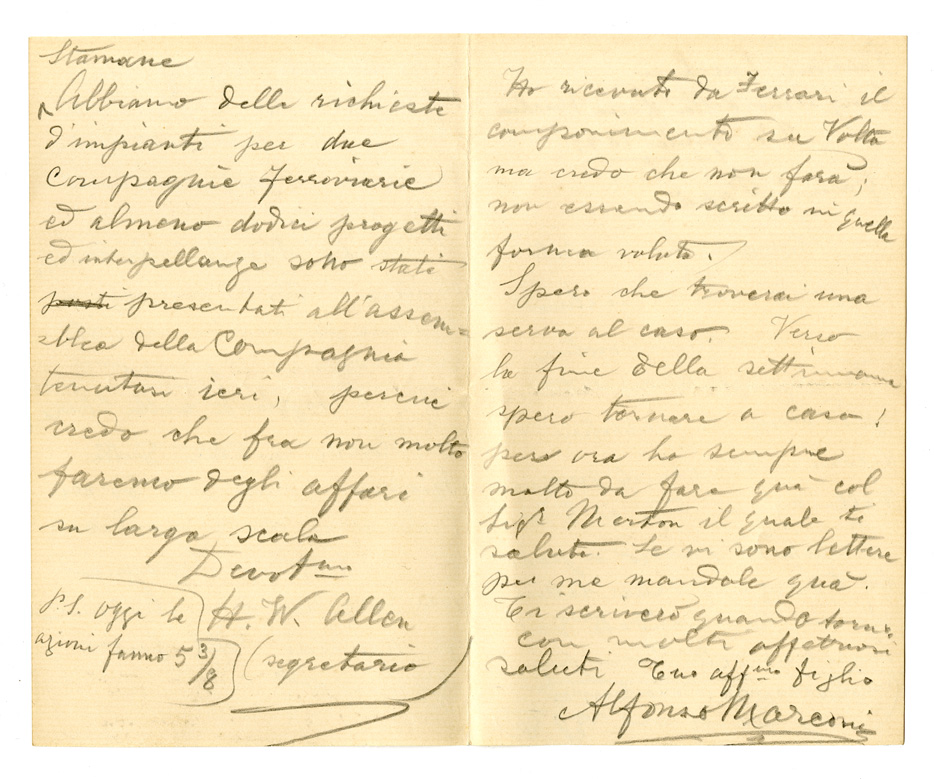 Stamane
Abbiamo delle richieste
d'impianti per due
Compagnie Ferroviarie
ed almeno dodici progetti
ed interpellanze sono stati
posti presentati all'assem=
=blea della Compagnia
tenutasi ieri, perciò
credo che fra non molto
faremo degli affari
su larga scala
Devotmo
H. W. Allen
(segretario
P.S. oggi le
azioni fanno 5 3/8
Ho ricevuto da Ferrari il
componimento su Volta
ma credo che non farà,
non essendo scritto in quella
forma voluta.
Spero che troverai una
serva al caso. Verso
la fine della settimana
spero tornare a casa!
per ora ho sempre
molto da fare quà col
Sigr Merton il quale ti
saluta. Se vi sono lettere
per me mandale quà.
Ti scriverò quando
con molti affettuosi
saluti Tuo affmo figlio
Alfonso Marconi